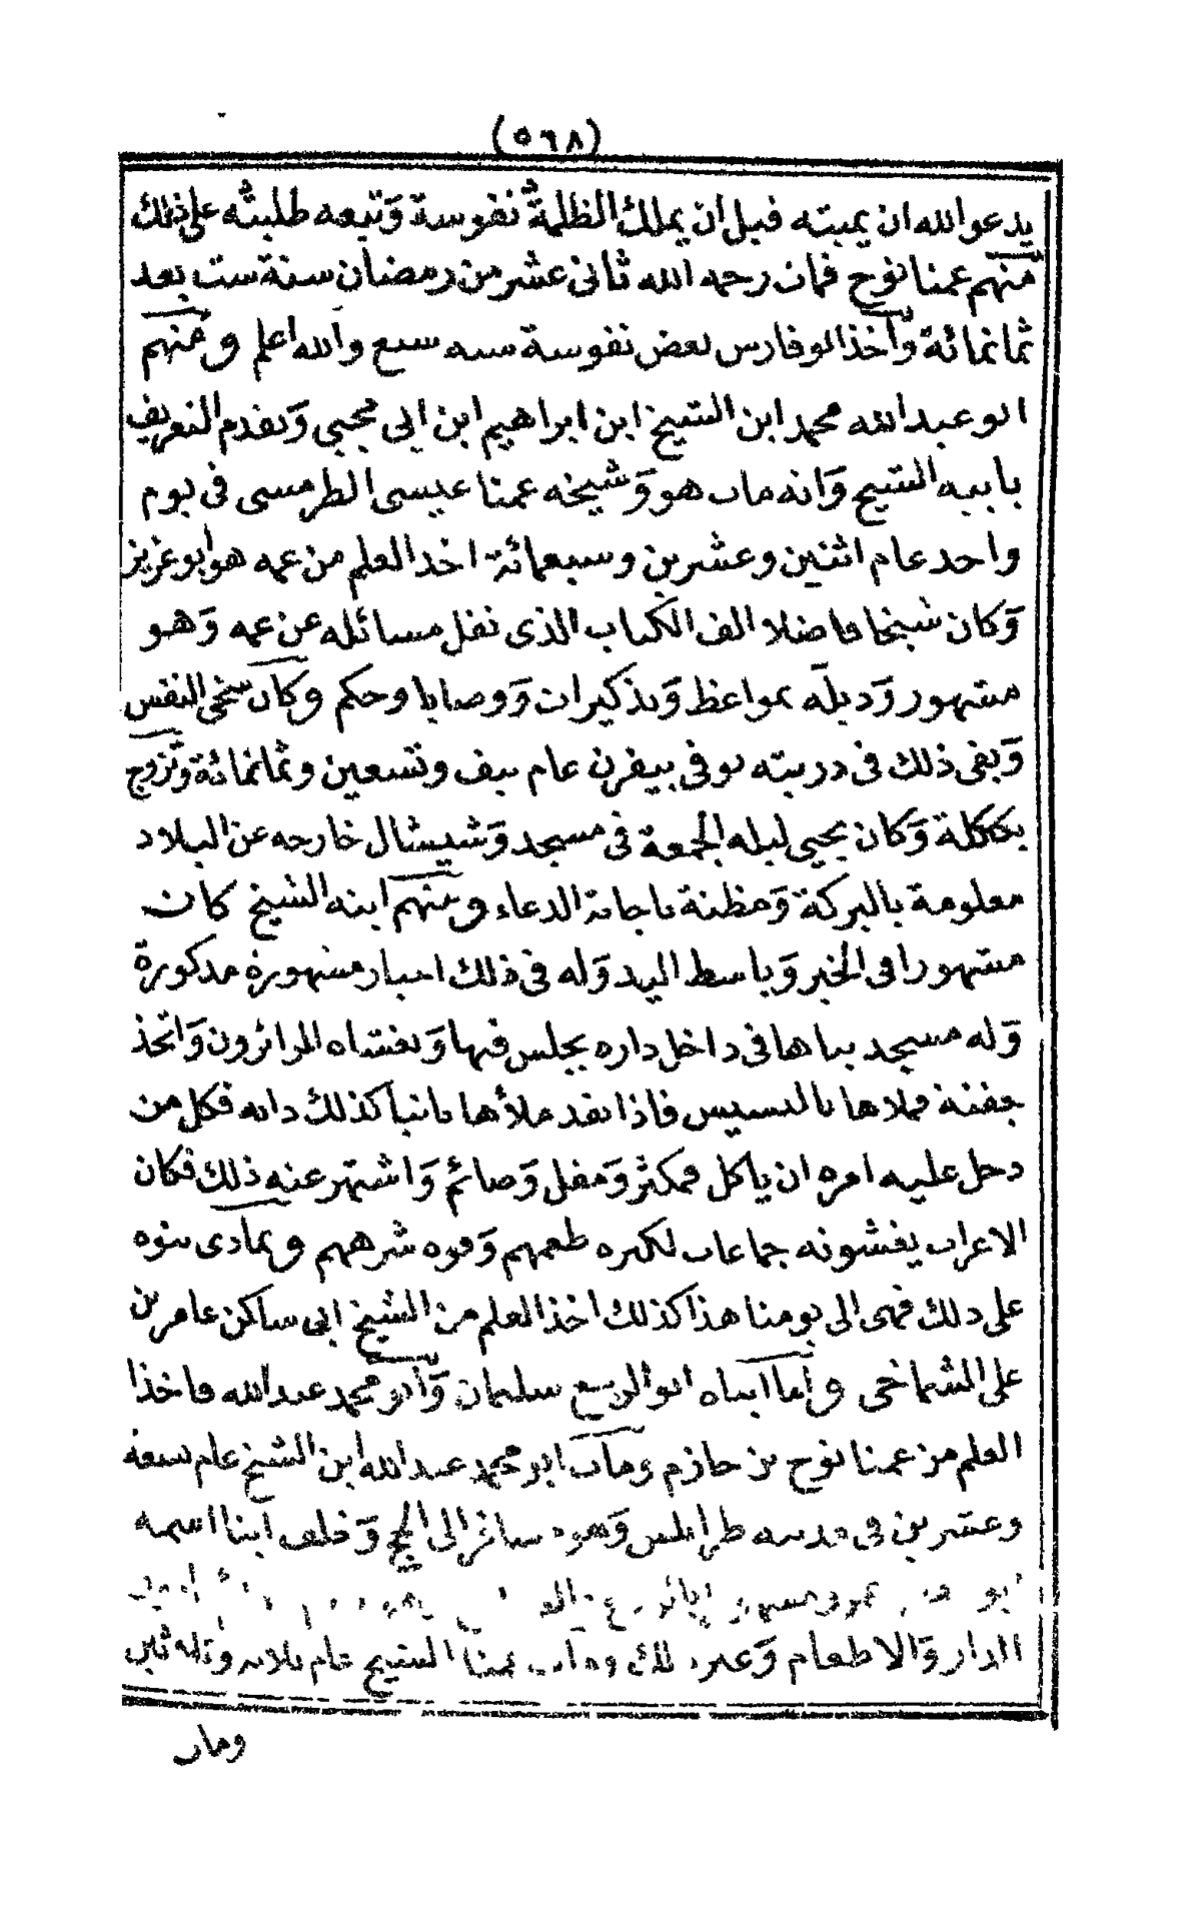 (٥٦٨)
يدعو الله ان يميته قبل ان يملك الظلمة نفوسة وتبعه طلبته على ذلك
منهم عمنا نوح فمات رحمه الله ثانى عشر من رمضان سنة ست بعد
ثمانمائة وأخذ ابو فارس بعض نفوسة سنه سبع والله اعلم ومنهم
ابو عبد الله محمد ابن الشيخ ابن ابراهيم ابن ابى يحيى وتقدم التعريف
بابيه الشيخ وانه مات هو وشيخه عمنا عيسى الطرمسى فى يوم
واحد عام اثنين وعشرين وسبعمائة اخذ العلم من عمه هو ابو عزيز
وكان شيخا فاضلا الف الكتاب الذى نقل مسائله عن عمه وهو
مشهور وذيله بمواعظ وتذكيرات ووصايا وحكم وكان سخى النفس
وبقى ذلك فى ذريته توفى بيفرن عام نيف وتسعين وثمانمائة وتزوج
بككلة وكان يحيى ليله الجمعة فى مسجد وشيشال خارجه عن البلاد
معلومة بالبركة ومظنة باجابة الدعاء ومنهم ابنه الشيخ كان
مشهورا فى الخير وباسط اليد وله فى ذلك اخبار مشهورة مذكورة
وله مسجد بناها فى داخل داره يجلس فيها ويغشاه الزائرون واتخذ
جفنة فملاها بالبسيس فاذا نفد ملأها ثانيا كذلك دابه فكل من
دخل عليه امره ان ياكل فمكثر ومقل وصائم واشتهر عنه ذلك فكان
الاعراب يغشونه جماعات لكثره طعمهم وقوه شرههم وتمادى بنوه
على ذلك فهى الى يومنا هذا كذلك اخذ العلم من الشيخ ابى ساكن عامر بن
على الشماخى واما ابناه ابو الربيع سليمان وابو محمد عبد الله فاخذا
العلم من عمنا نوح بن حازم ومات ابو محمد عبد الله ابن الشيخ عام سبعة
وعشرين فى مدينه طرابلس وهو مسافر الى الحج وخلف ابنا اسمه
الدار والاطعام وغير ذلك ومات عمنا الشيخ عام ثلاثه وثلاثين
ومات